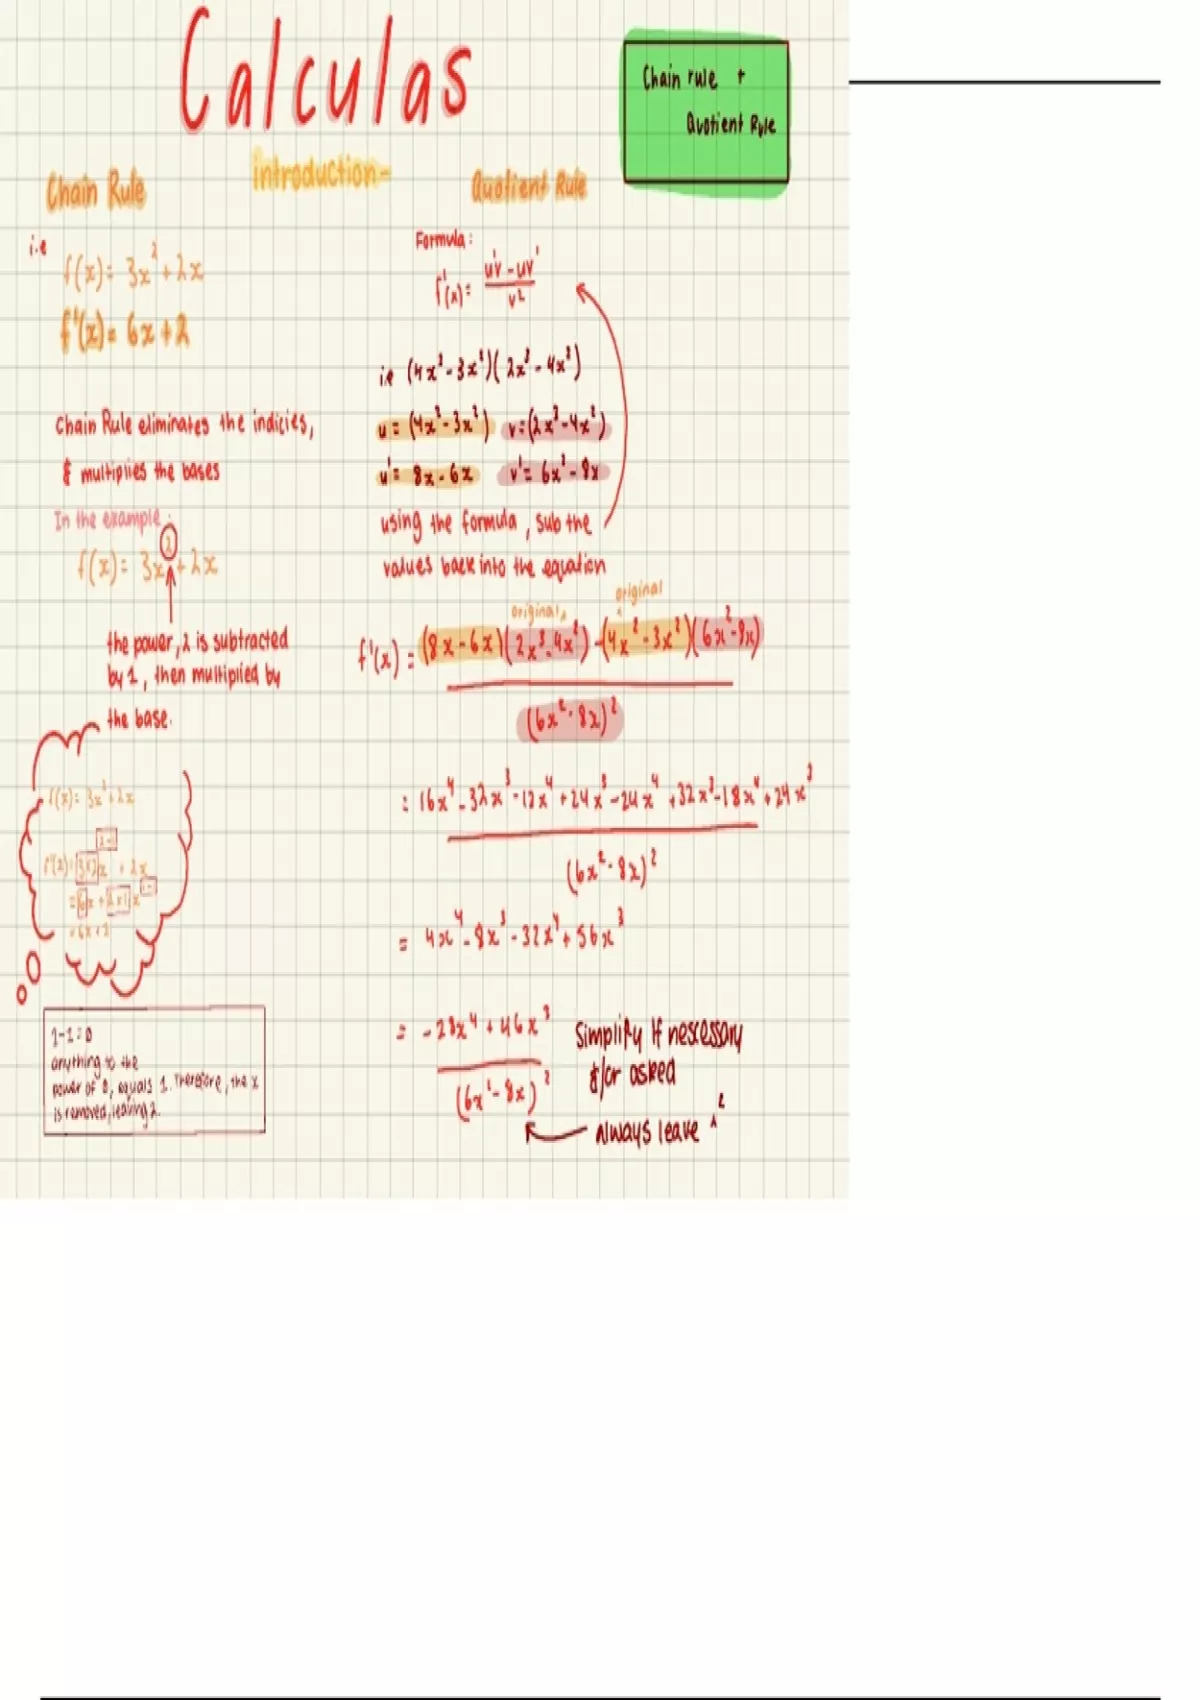 Calculas
Chain rule +
Quotient Rule
introduction-
Chain Rule
i.e
f(x)= 3x²+2x
f'(x)= 6x+2
Chain Rule eliminates the indicies,
& multiplies the bases
In the example:
f(x)= 3x²+2x
the power, 2 is subtracted
by 1, then multiplied by
the base.
f(x)= 3x²+2x
f'(x)= 3×2x²⁻¹ + 2x
= 6x + 2×1x¹⁻¹
= 6x+2
1-1=0
anything to the
power of 0, equals 1. Therefore, the x
is removed, leaving 2.
Quotient Rule
Formula:
f'(x)= u'v-uv'/v²
i.e (4x²-3x²)(2x³-4x²)
u= (4x²-3x²) v=(2x³-4x²)
u'= 8x-6x v'= 6x²-8x
using the formula, sub the
values back into the equation
original original
f'(x) = (8x-6x)(2x³-4x²)-(4x²-3x²)(6x²-8x)
(6x²-8x)²
= 16x⁴-32x³-12x⁴+24x³-24x⁴+32x³-18x⁴+24x³
(6x²-8x)²
= 4x⁴-8x³-32x⁴+56x³
= -28x⁴+46x³
(6x²-8x)²
Simplify If nescessory
&/or asked
Always leave ^²